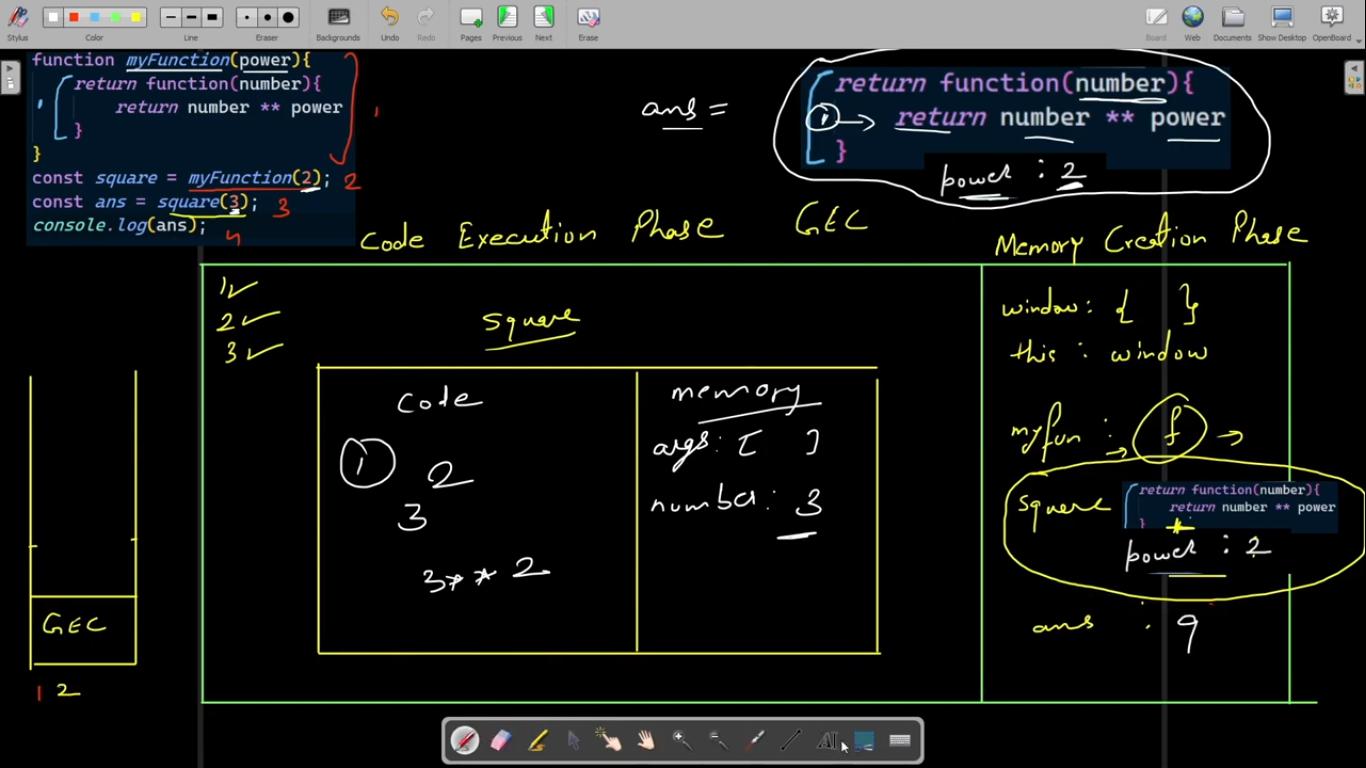 Stylus
Color
Line
Eraser
Backgrounds
Undo
Redo
Pages
Previous
Next
Erase
Board
Web
Documents
Show Desktop
OpenBoard
function myFunction(power){
return function(number){
return number ** power
}
}
const square = myFunction(2);
const ans = square(3);
console.log(ans);
1
1
2
3
4
ans =
return function(number){
1 → return number ** power
}
power : 2
Code Execution Phase GEC
Memory Creation Phase
1 ✓
2 ✓
3 ✓
square
code
1 2
3
3 ** 2
memory
args: [ ]
number: 3
window: { }
this : window
myfun : f →
square
return function(number){
return number ** power
}
power : 2
ans : 9
GEC
1 2
AI